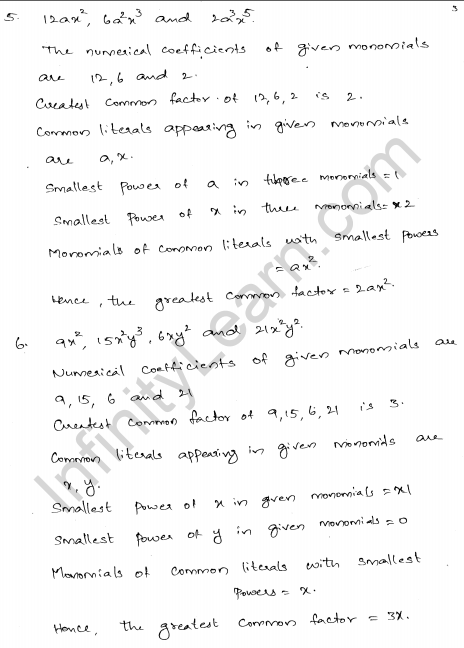 3
5. 12ax², 6a²x³ and 2a³x⁵.
The numerical coefficients of given monomials
are 12, 6 and 2.
Greatest common factor of 12, 6, 2 is 2.
Common literals appearing in given monomials
are a, x.
Smallest power of a in three monomials = 1
Smallest power of x in three monomials = 2
Monomials of common literals with smallest powers
= ax².
Hence, the greatest common factor = 2ax².
6. 9x², 15x²y³, 6xy² and 21x²y².
Numerical coefficients of given monomials are
9, 15, 6 and 21
Greatest common factor of 9, 15, 6, 21 is 3.
Common literals appearing in given monomials are
x, y.
Smallest power of x in given monomials = 1
Smallest power of y in given monomials = 0
Monomials of common literals with smallest
powers = x.
Hence, the greatest common factor = 3x.
InfinityLearn.com